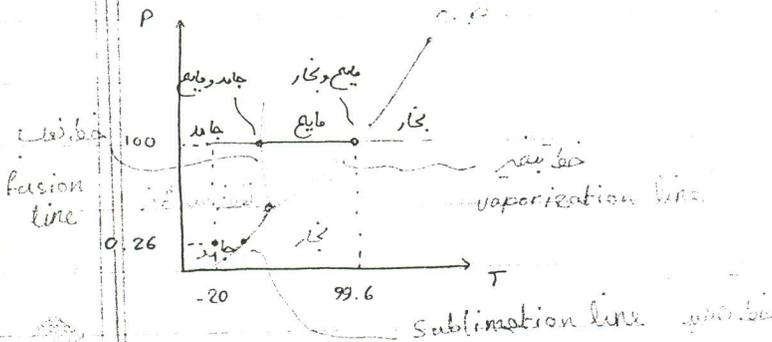 P
جامد و مایع
مایع و بخار
خط ذوب
100
جامد
مایع
بخار
fusion line
خط تبخیر
vaporization line
0.26
جامد
بخار
T
-20
99.6
Sublimation line